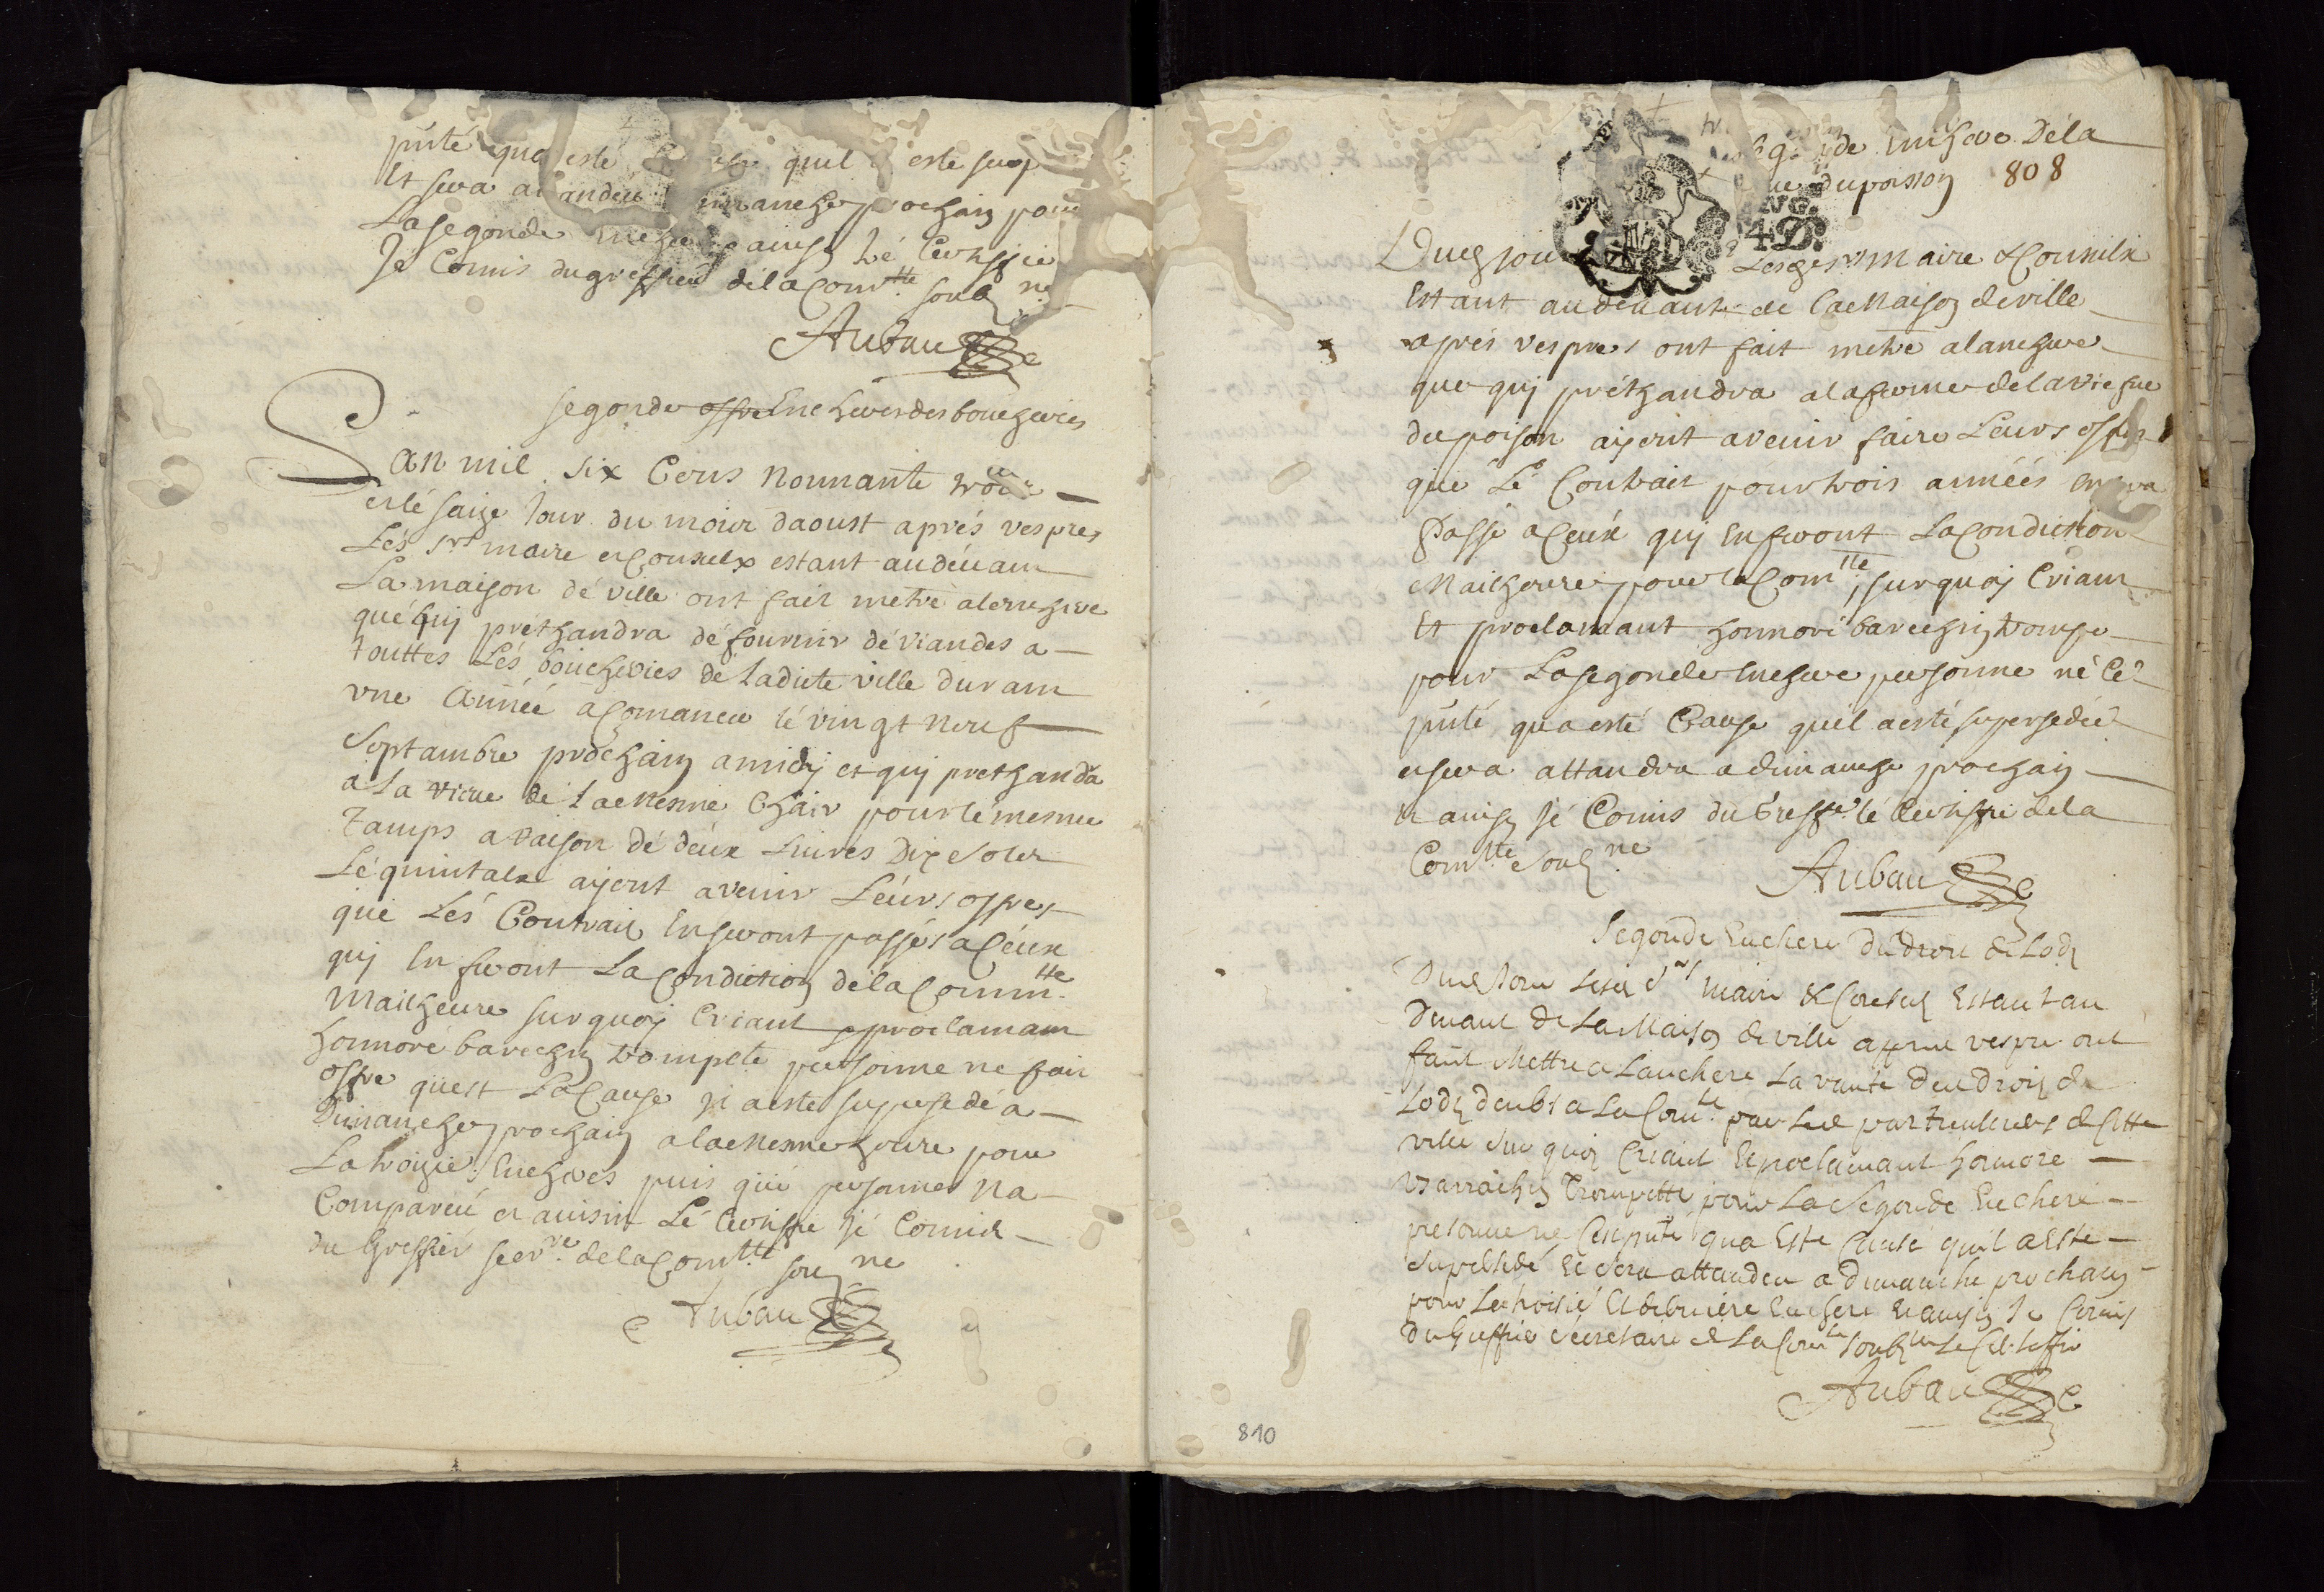 puté qua esté quil esté sup
Et sera attandeu dimanche prochain pour
La segonde enchere ainsin lé Certiffie
Je Comis du greffier dé la Com.tte soub.ne
Aubau
segonde offre Encheres des boucheries
Lan mil six Cens Nonnante trois
et lé saize Jour du mois daoust aprés vespres
Lés srs maire et Consulx estant au déuam
La maison dé ville ont fait metre alenchere
qué quy préthandra dé fournir dé viandes a
touttes Lés boucheries de Ladicte ville duram
vne Année a Comancer lé vingt neuf
Septambre prochain a midy et quy prethandra
a La vicue de La Mesme Chair pour lé mesme
Tamps a raison dé déux Liures Dix Solz
Lé quintalx ayent a venir Léurs offres
qué Lés Contrait En seront passés a Céux
quy En feront La Condiction dé la Comm.tte
Mailheure sur quoy Criant et proclamam
honnoré barechin trompete personne ne fait
offre quest La Cause quil a esté supersedé a
Dimanche prochain a la Mesme houre pour
La troizié. Encheres puis qué personne Na
Compareu et ainsin Lé Certiffie Jé Comis
du Greffier secr.re de la Com.tte soub.ne
Aubau
segonde Enchere Dé la
du poisson 808
Duez jour Lesds srs Maire & Consulx
Estant au déuant de La Maison de ville
aprés vespres ont fait metre a lanchere
que quy préthandra a la ferme de la vicue
du poison ayent a venir faire Leurs offres
qué Lé Contrait pour trois années en sera
Passé a Céux quy En feront La Condiction
Mailheure pour la Com.tte, sur quoy Criam
Et proclamant honnoré barechin trompe
pour La segonde Enchere personne né Cé
puté, qua esté Cause quil a esté supersedée
et sera attandre a dimanche prochain
et ainsin Jé Comis du Greff.er lé Certiffie de la
Com.tte Soub.ne
Aubau
Segonde Enchere du droit de Lods
Duez Jour Lesds Srs Maire & Consulz Estant au
Deuant de La Maison de ville apprés vespre ont
faiit Mettre a Lanchere La vante deu droit de
Lods deubs a La Com.te par Les particuliers de Cette
ville sur quoy Criant Et proclamant honnoré
Barrachin Trompette pour La Segonde Enchere
personne ne Cest puté qua Esté Cause quil a Esté
supersedé Et Sera attandeu a Dimanche prochain
pour La troisié Et derniere Enchere Et ainsin Je Comis
du Greffier Secretaire de La Com.te Soub.ne Le Certiffie
Aubau
810